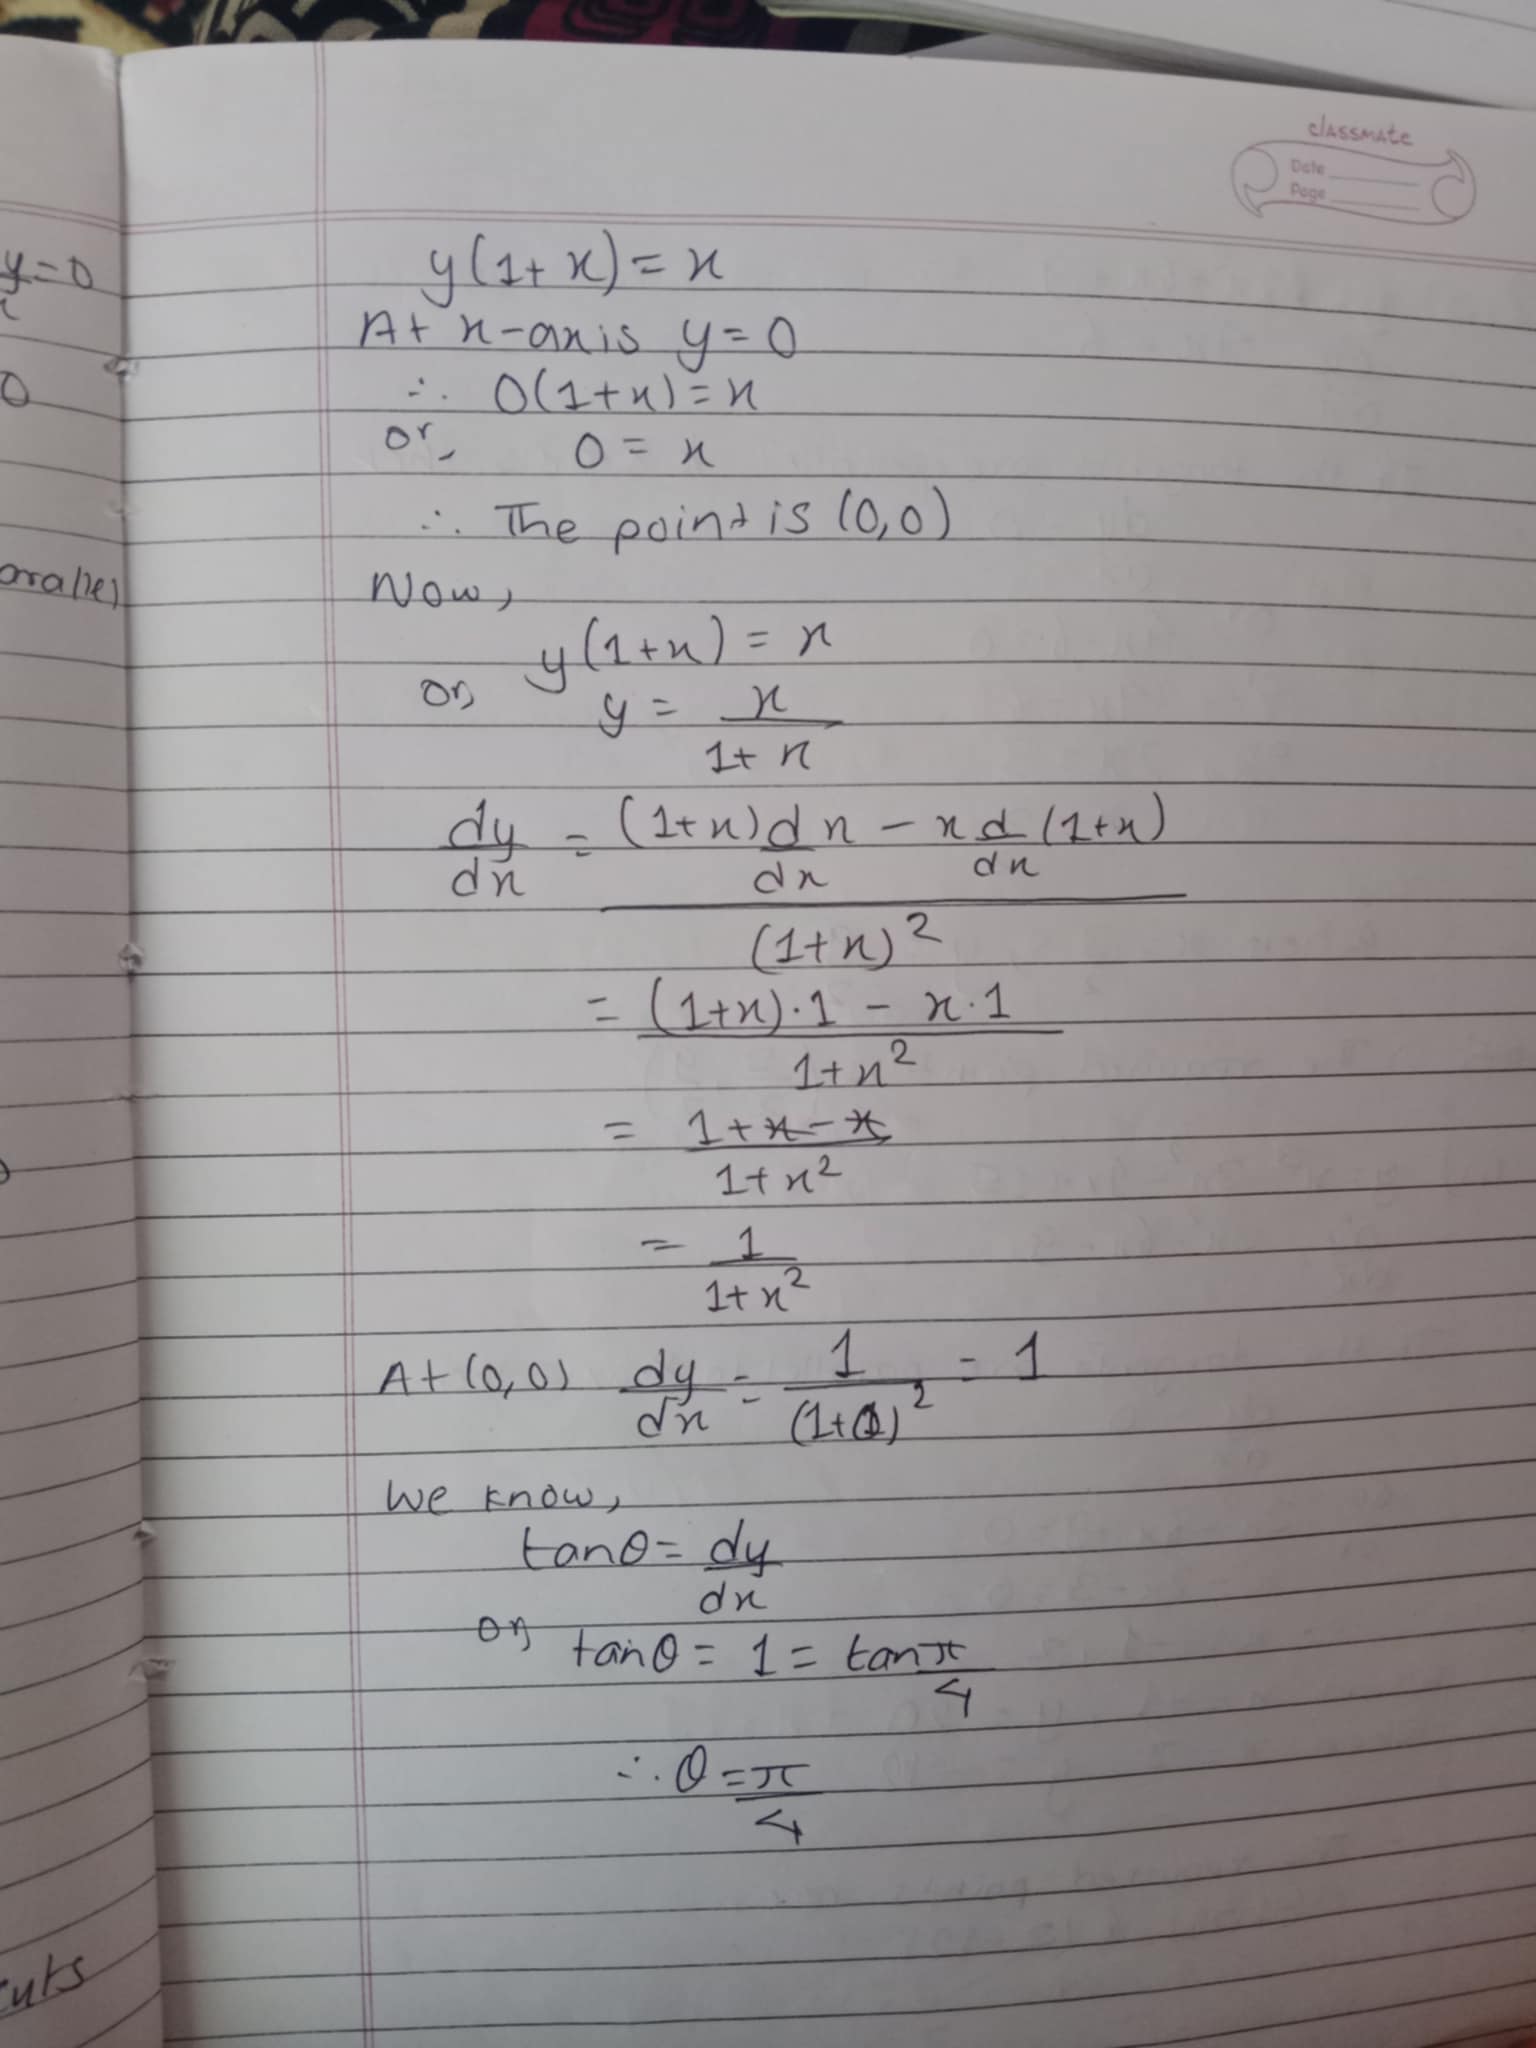 classmate
Date
Page
y=0
x
0
y(1+x)=x
At x-axis y=0
∴ 0(1+x)=x
or, 0=x
∴ The point is (0,0)
Now,
y(1+x)=x
or, y = x/(1+x)
dy/dx = ((1+x) d/dx x - x d/dx (1+x))/(1+x)²
= ((1+x)·1 - x·1)/(1+x²)
= (1+x-x)/(1+x²)
= 1/(1+x²)
At (0,0) dy/dx = 1/(1+0)² = 1
We know,
tanθ = dy/dx
or, tanθ = 1 = tan π/4
∴ θ = π/4
cuts